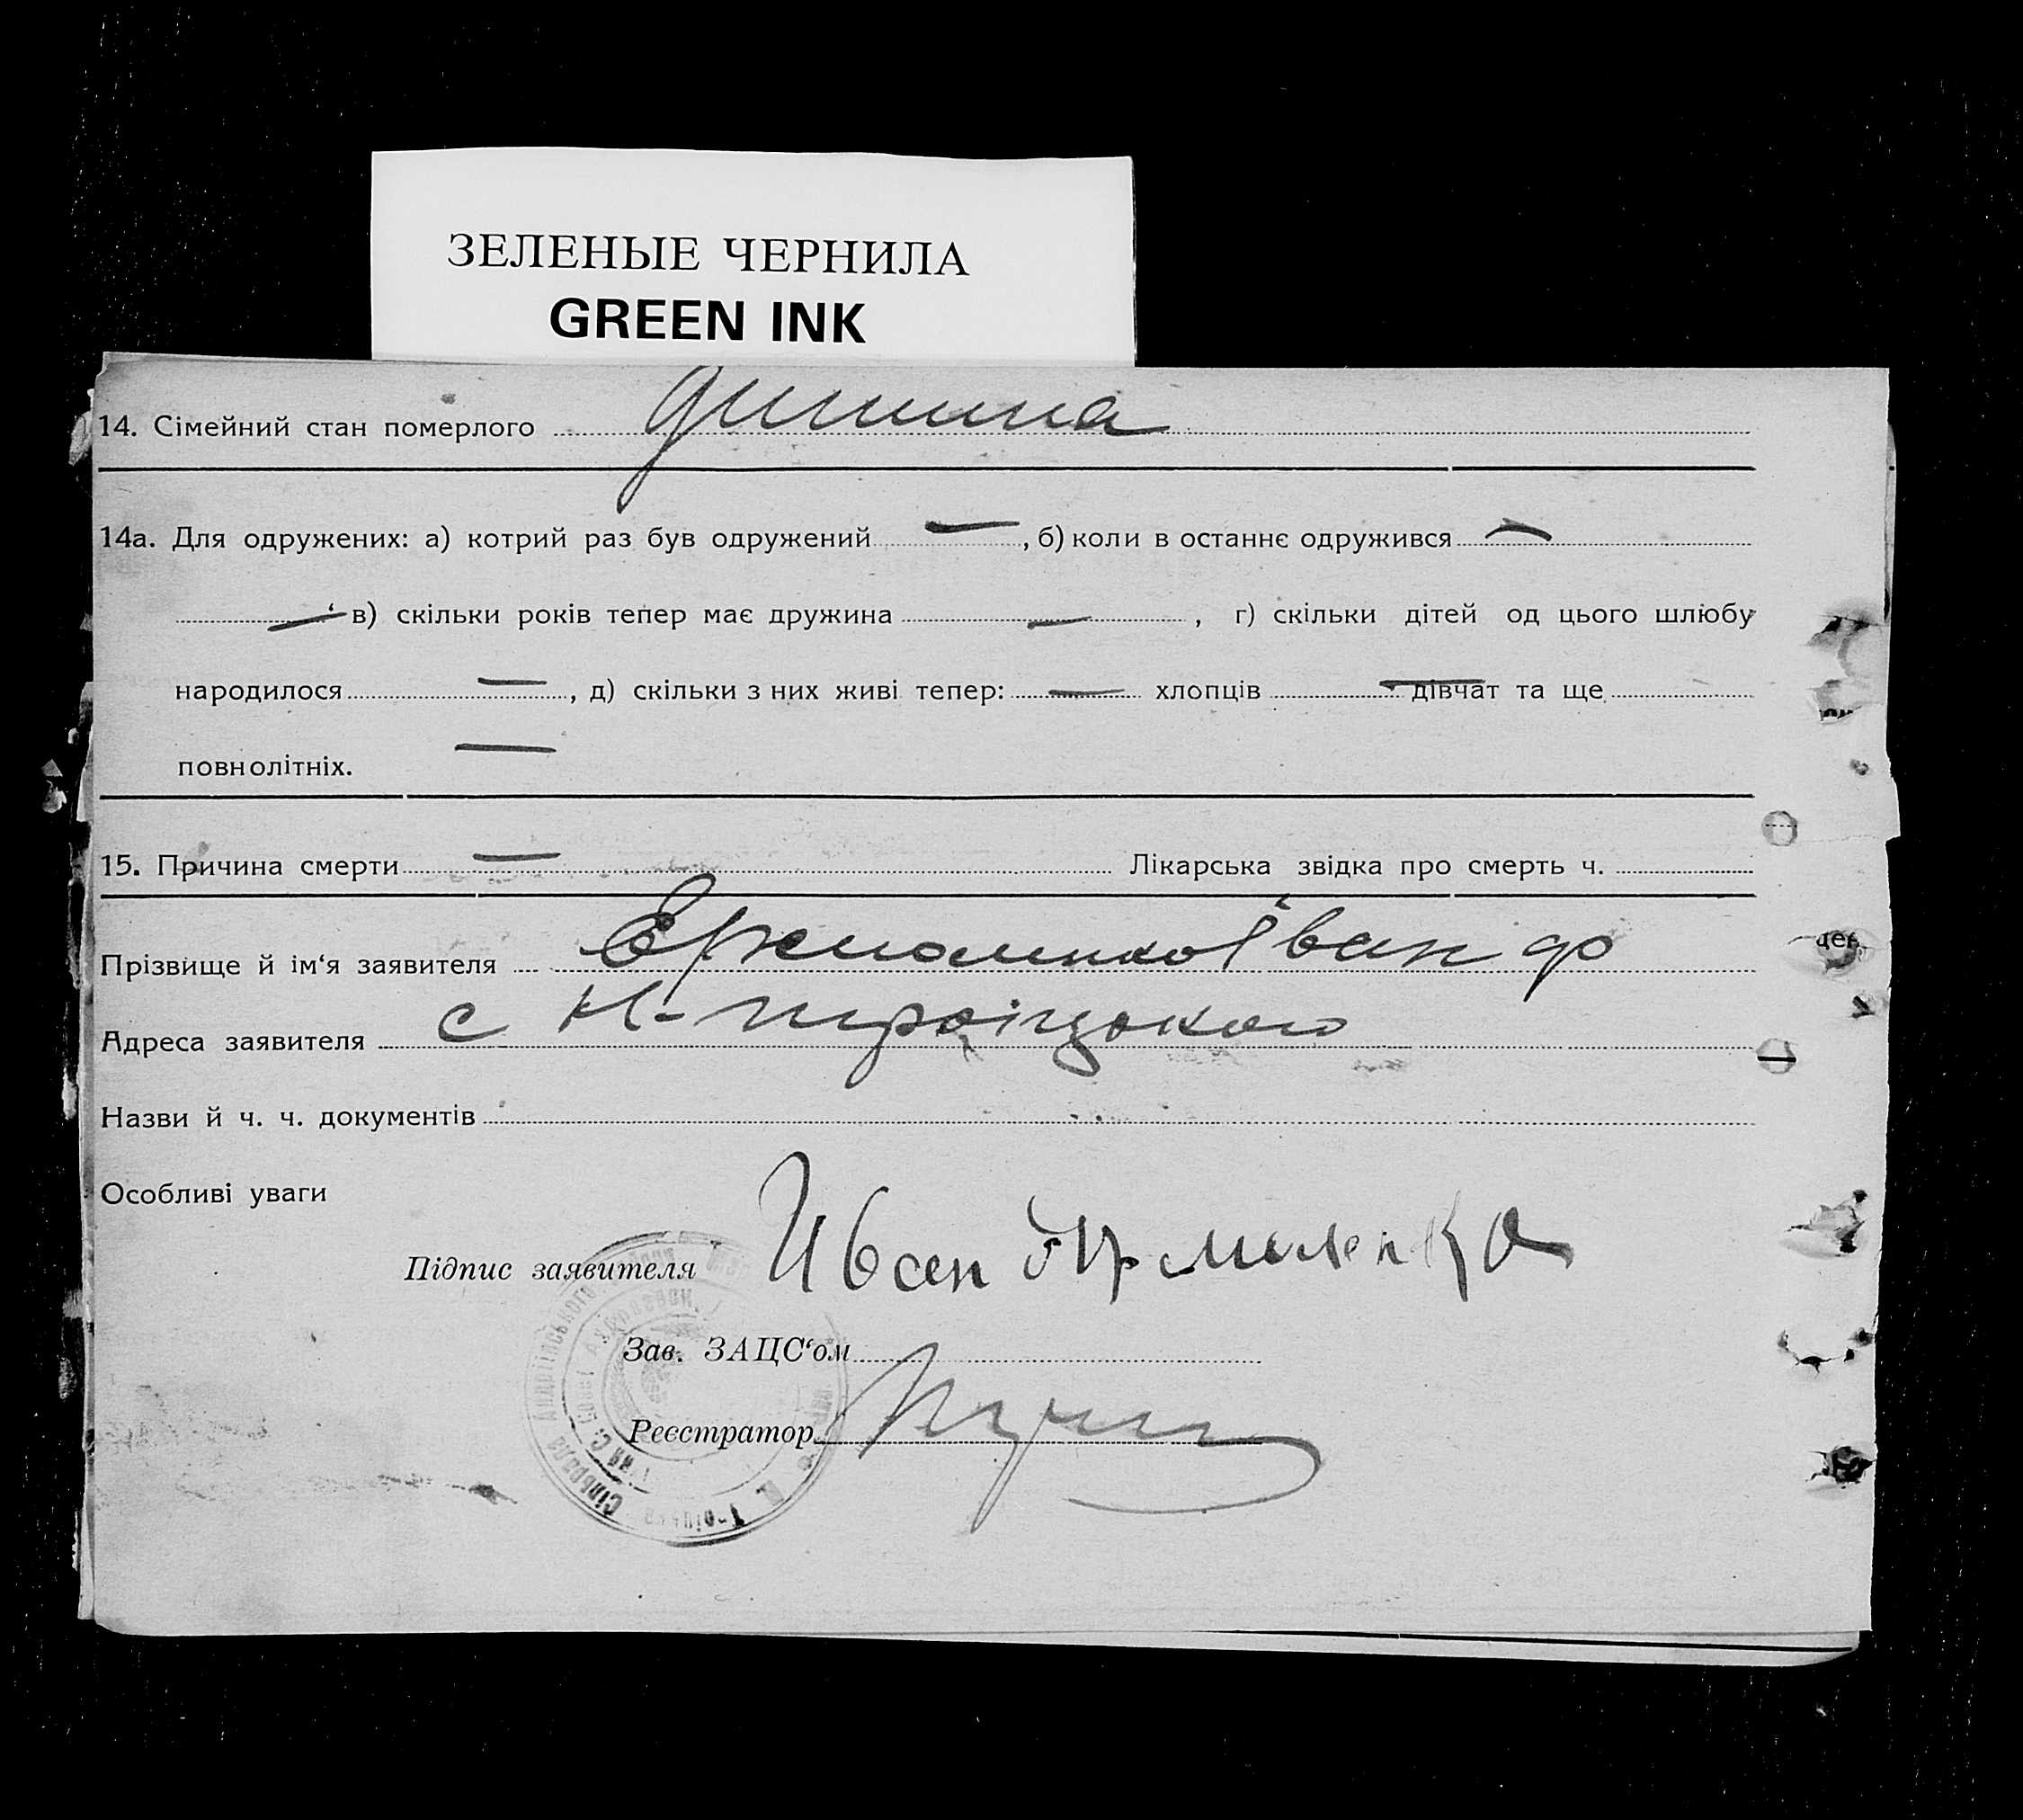 ЗЕЛЕНЫЕ ЧЕРНИЛА
GREEN INK
14. Сімейний стан померлого дитина
14а. Для одружених: а) котрий раз був одружений — , б) коли в останнє одружився —
— в) скільки років тепер має дружина — , г) скільки дітей од цього шлюбу
народилося — , д) скільки з них живі тепер: — хлопців — дівчат та ще
повнолітніх. —
15. Причина смерти — Лікарська звідка про смерть ч.
Прізвище й ім‘я заявителя Іван ф
Адреса заявителя с Н-троіцького
Назви й ч. ч. документів
Особливі уваги
Підпис заявителя
Зав. ЗАЦС‘ом
Реєстратор
Сільрада